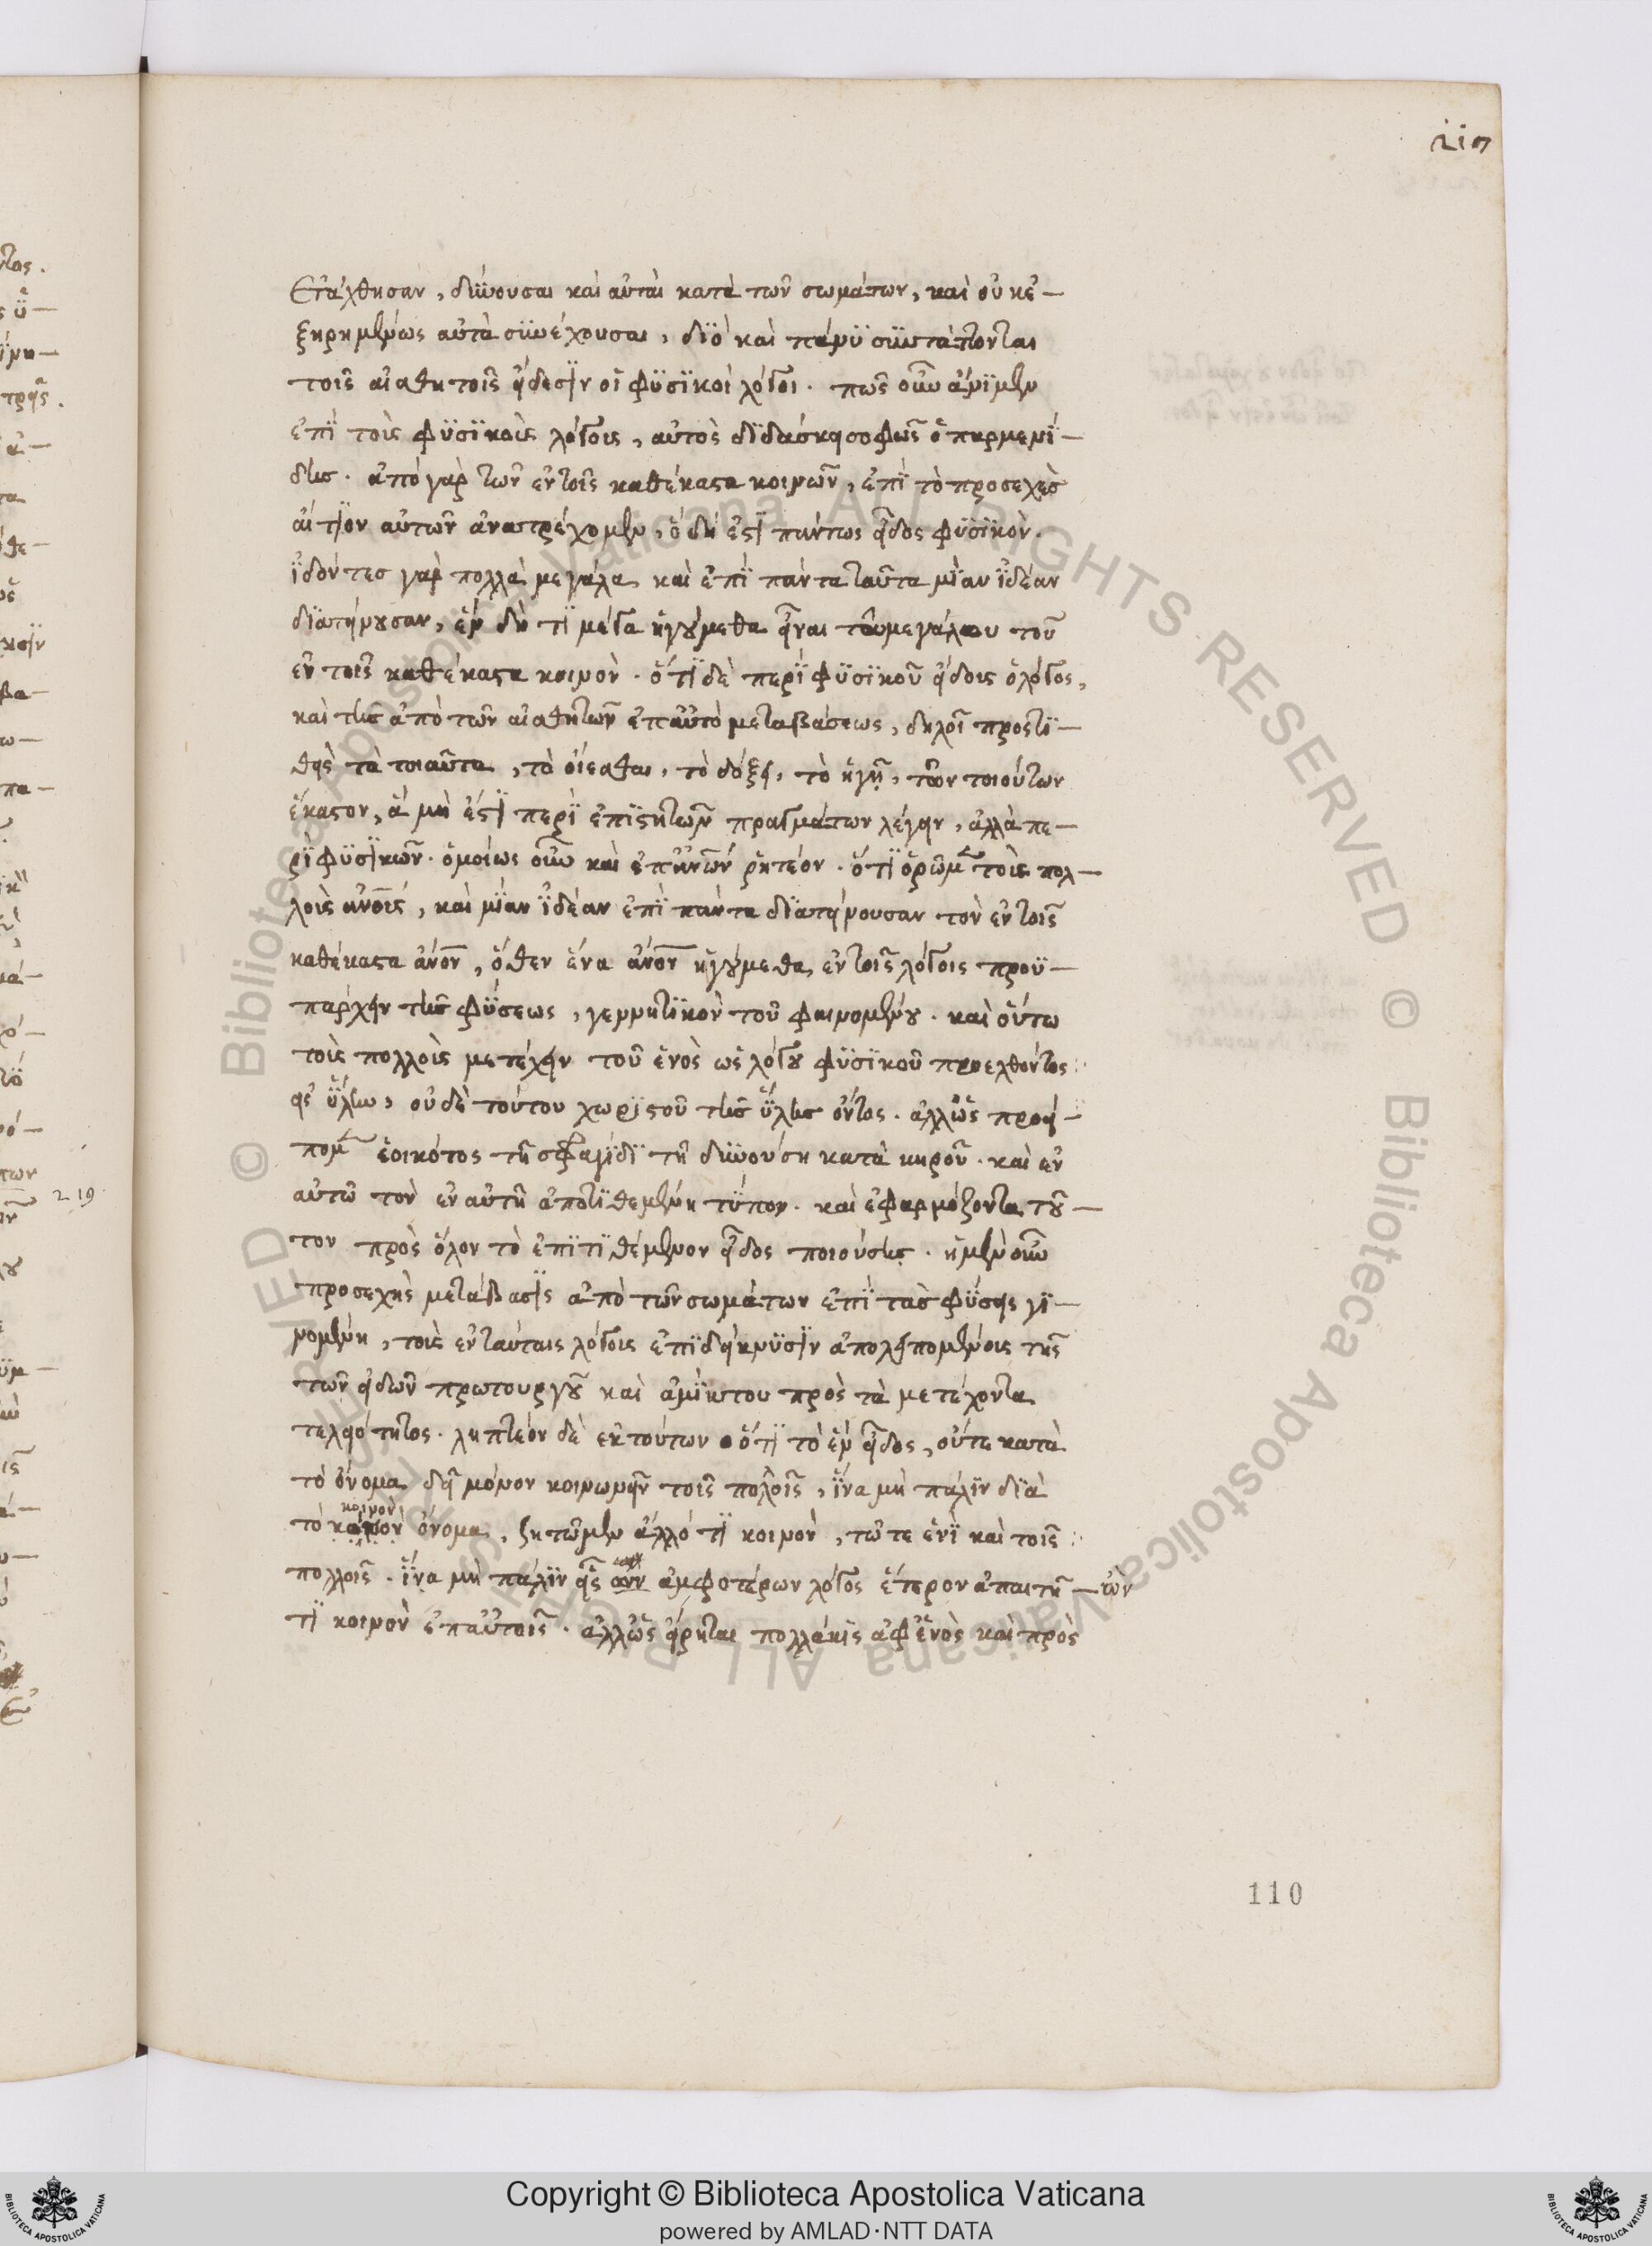 110
ἐτάχθησαν, δύνουσαι καὶ αὐταὶ κατὰ τῶν σωμάτων, καὶ οὐκ ἐ-
ξηρημένως αὐτὰ συνέχουσαι, διὸ καὶ πάνυ συντάττονται
τοῖς αἰσθητοῖς εἴδεσιν οἱ φυσικοὶ λόγοι. πῶς οὖν ἄνιμεν
ἐπὶ τοῖς φυσικοῖς λόγοις, αὐτὸς διδάσκει σοφῶς ὁ παρμενί-
δης. ἀπὸ γὰρ τῶν ἐν τοῖς καθέκαστα κοινῶν, ἐπὶ τὸ προσεχὲσ
αἴτιον αὐτῶν ἀνατρέχομεν, ὃ δή ἐστι πάντως εἶδος φυσικὸν.
ἰδόντεσ γὰρ πολλὰ μεγάλα καὶ ἐπὶ πάντα ταῦτα μίαν ἰδέαν
διατείνουσαν, ἓν δή τι μέγα ἡγούμεθα εἶναι τοῦ μεγάλου τοῦ
ἐν τοῖς καθέκαστα κοινὸν. ὅτι δὲ περὶ φυσικοῦ εἴδους ὁ λόγος,
καὶ τῆς ἀπὸ τῶν αἰσθητῶν ἐπ αὐτὸ μεταβάσεως, δηλοῖ προστι-
θεὶς τὰ τοιαῦτα, τὸ οἴεσθαι, τὸ δόξῃ, τὸ ἡγῇ, τῶν τοιούτων
ἕκαστον, ἃ μή ἐστι περὶ ἐπιστητῶν πραγμάτων λέγειν, ἀλλὰ πε-
ρὶ φυσικῶν. ὁμοίως οὖν καὶ ἐπ ἀνων ῥητέον. ὅτι ὁρῶμεν τοῖς πολ-
λοῖς ανοις, καὶ μίαν ἰδέαν ἐπὶ πάντα διατείνουσαν τὸν ἐν τοῖς
καθέκαστα ανον, ὅθεν ἕνα ανον ἡγούμεθα, ἐν τοῖς λόγοις προϋ-
πάρχειν τῆς φύσεως, γεννητικὸν τοῦ φαινομένου. καὶ οὕτω
τοῖς πολλοῖς μετέχειν τοῦ ἑνὸς ὡς λόγου φυσικοῦ προελθόντος
εἰς ὕλην, οὐδὲ τούτου χωριστοῦ τῆς ὕλης ὄντος. ἀλλ ὡς προεί-
πομεν ἐοικότος τῇ σφραγίδι τῇ δυνούσῃ κατὰ κηροῦ. καὶ ἐν
αὐτῷ τὸν ἐν αὐτῇ ἀποτιθεμένη τύπον. καὶ ἐφαρμόζοντα τοῦ-
τον πρὸς ὅλον τὸ ἐπιτιθέμενον εἶδος ποιούσης. ἡ μὲν οὖν
προσεχὴς μετάβασις ἀπὸ τῶν σωμάτων ἐπὶ τὰς φύσεις γι-
νομένη, τοῖς ἐν ταύταις λόγοις ἐπιδείκνυσιν ἀπολειπομένοις τῆς
τῶν εἰδῶν πρωτουργοῦ καὶ ἀμίκτου πρὸς τὰ μετέχοντα
τελειότητος. ληπτέον δὲ ἐκ τούτων ὅτι τὸ ἓν εἶδος, οὔτε κατὰ
τὸ ὄνομα δεῖ μόνον κοινωνεῖν τοῖς πολλοῖς, ἵνα μὴ πάλιν διὰ
τὸ κοινὸν ὄνομα, ζητῶμεν ἄλλό τι κοινὸν, τῷ τε ἑνὶ καὶ τοῖς
πολλοῖς. ἵνα μὴ πάλιν εἷς ὢν ἀμφοτέρων λόγος ἕτερον ἀπαιτῇ - τῶν
τι κοινὸν ἐπ αὐτοῖς. ἀλλ ὡς εἴρηται πολλάκις ἀφ ἑνὸς καὶ πρὸς
219
110
Copyright © Biblioteca Apostolica Vaticana
powered by AMLAD·NTT DATA